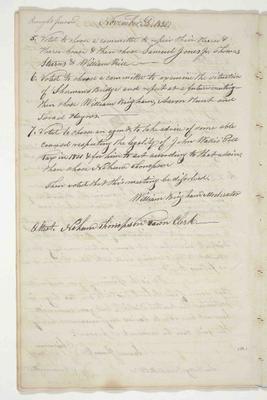 Brought forward November 26, 1821
5. Voted to choose a committee to repair their Hearse &
Hearse house & then chose Samuel Jones for Thomas
Stearns & William Rice
6. Voted to choose a committee to examine the situation
of Sherman's Bridge and report at a future meeting
then chose William Brigham, Aaron Hunt and
Israel Haynes
7. Voted to choose an agent to take advice of some able
counsel respecting the legality of John Potter's Poll
tax in 1821 & for him to act according to that advice
then chose Nahum Thompson
Then voted that this meeting be dissolved.
William Brigham Moderator
Attest. Nahum Thompson Town Clerk